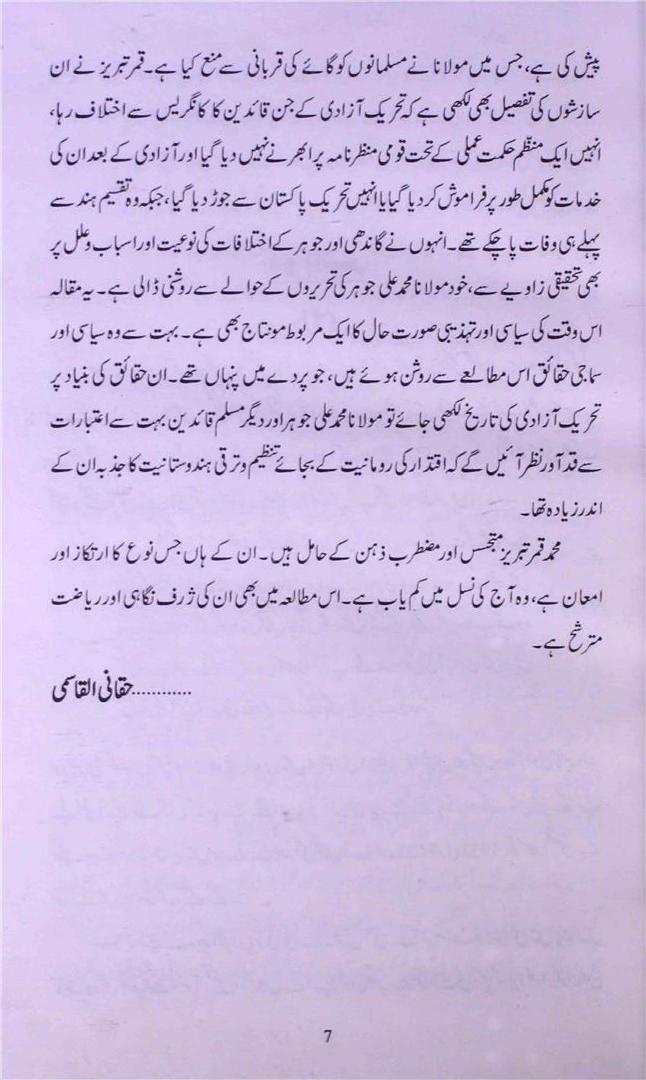 پیش کی ہے، جس میں مولانا نے مسلمانوں کو گائے کی قربانی سے منع کیا ہے۔ قمر تبریز نے ان
سازشوں کی تفصیل بھی لکھی ہے کہ تحریک آزادی کے جن قائدین کا کانگریس سے اختلاف رہا،
انہیں ایک منظّم حکمت عملی کے تحت قومی منظرنامہ پر ابھرنے نہیں دیا گیا اور آزادی کے بعد ان کی
خدمات کو مکمل طور پر فراموش کر دیا گیا یا انہیں تحریک پاکستان سے جوڑ دیا گیا، جبکہ وہ تقسیم ہند سے
پہلے ہی وفات پا چکے تھے۔ انہوں نے گاندھی اور جوہر کے اختلافات کی نوعیت اور اسباب وعلل پر
بھی تحقیقی زاویے سے، خود مولانا محمد علی جوہر کی تحریروں کے حوالے سے روشنی ڈالی ہے۔ یہ مقالہ
اس وقت کی سیاسی اور تہذیبی صورت حال کا ایک مربوط مونتاج بھی ہے۔ بہت سے وہ سیاسی اور
سماجی حقائق اس مطالعے سے روشن ہوئے ہیں، جو پردے میں پنہاں تھے۔ ان حقائق کی بنیاد پر
تحریک آزادی کی تاریخ لکھی جائے تو مولانا محمد علی جوہر اور دیگر مسلم قائدین بہت سے اعتبارات
سے قد آور نظر آئیں گے کہ اقتدار کی رومانیت کے بجائے تنظیم وترقی ہندوستانیت کا جذبہ ان کے
اندر زیادہ تھا۔
محمد قمر تبریز متجسس اور مضطرب ذہن کے حامل ہیں۔ ان کے ہاں جس نوع کا ارتکاز اور
امعان ہے، وہ آج کی نسل میں کم یاب ہے۔ اس مطالعہ میں بھی ان کی ژرف نگاہی اور ریاضت
مترشح ہے۔
............حقانی القاسمی
7